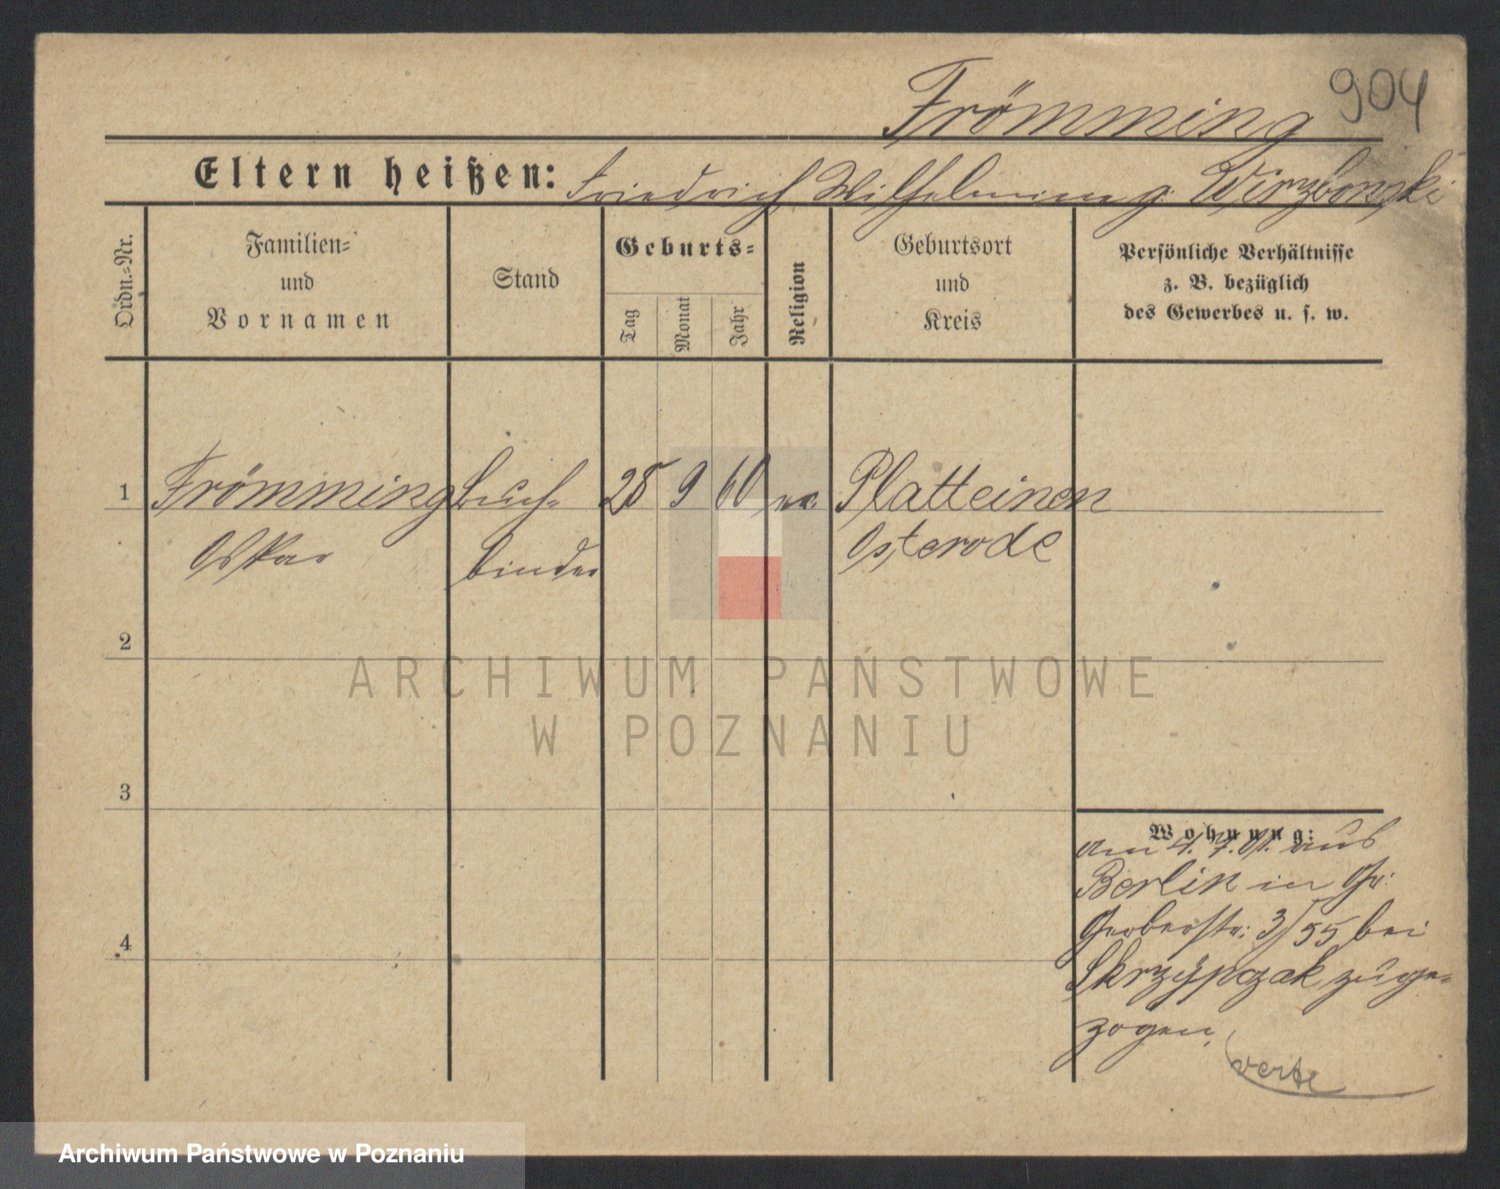 904
Frömming
Eltern heißen: Friedrich Wilhelmine g. Wirzbowski
Ordn.=Nr.
Familien=
und
Vornamen
Stand
Geburts=
Tag
Monat
Jahr
Religion
Geburtsort
und
Kreis
Persönliche Verhältnisse
z. B. bezüglich
des Gewerbes u. s. w.
1 Frömming Buch= 28 9 60 Platteinen
Oskar binder Osterode
2
3
4
Wohnung:
am 4. 7. 01. aus
Berlin in Gr:
Gerberstr: 3/55 bei
Skrzypczak zuge=
zogen.
verte
ARCHIWUM PAŃSTWOWE
W POZNANIU
Archiwum Państwowe w Poznaniu